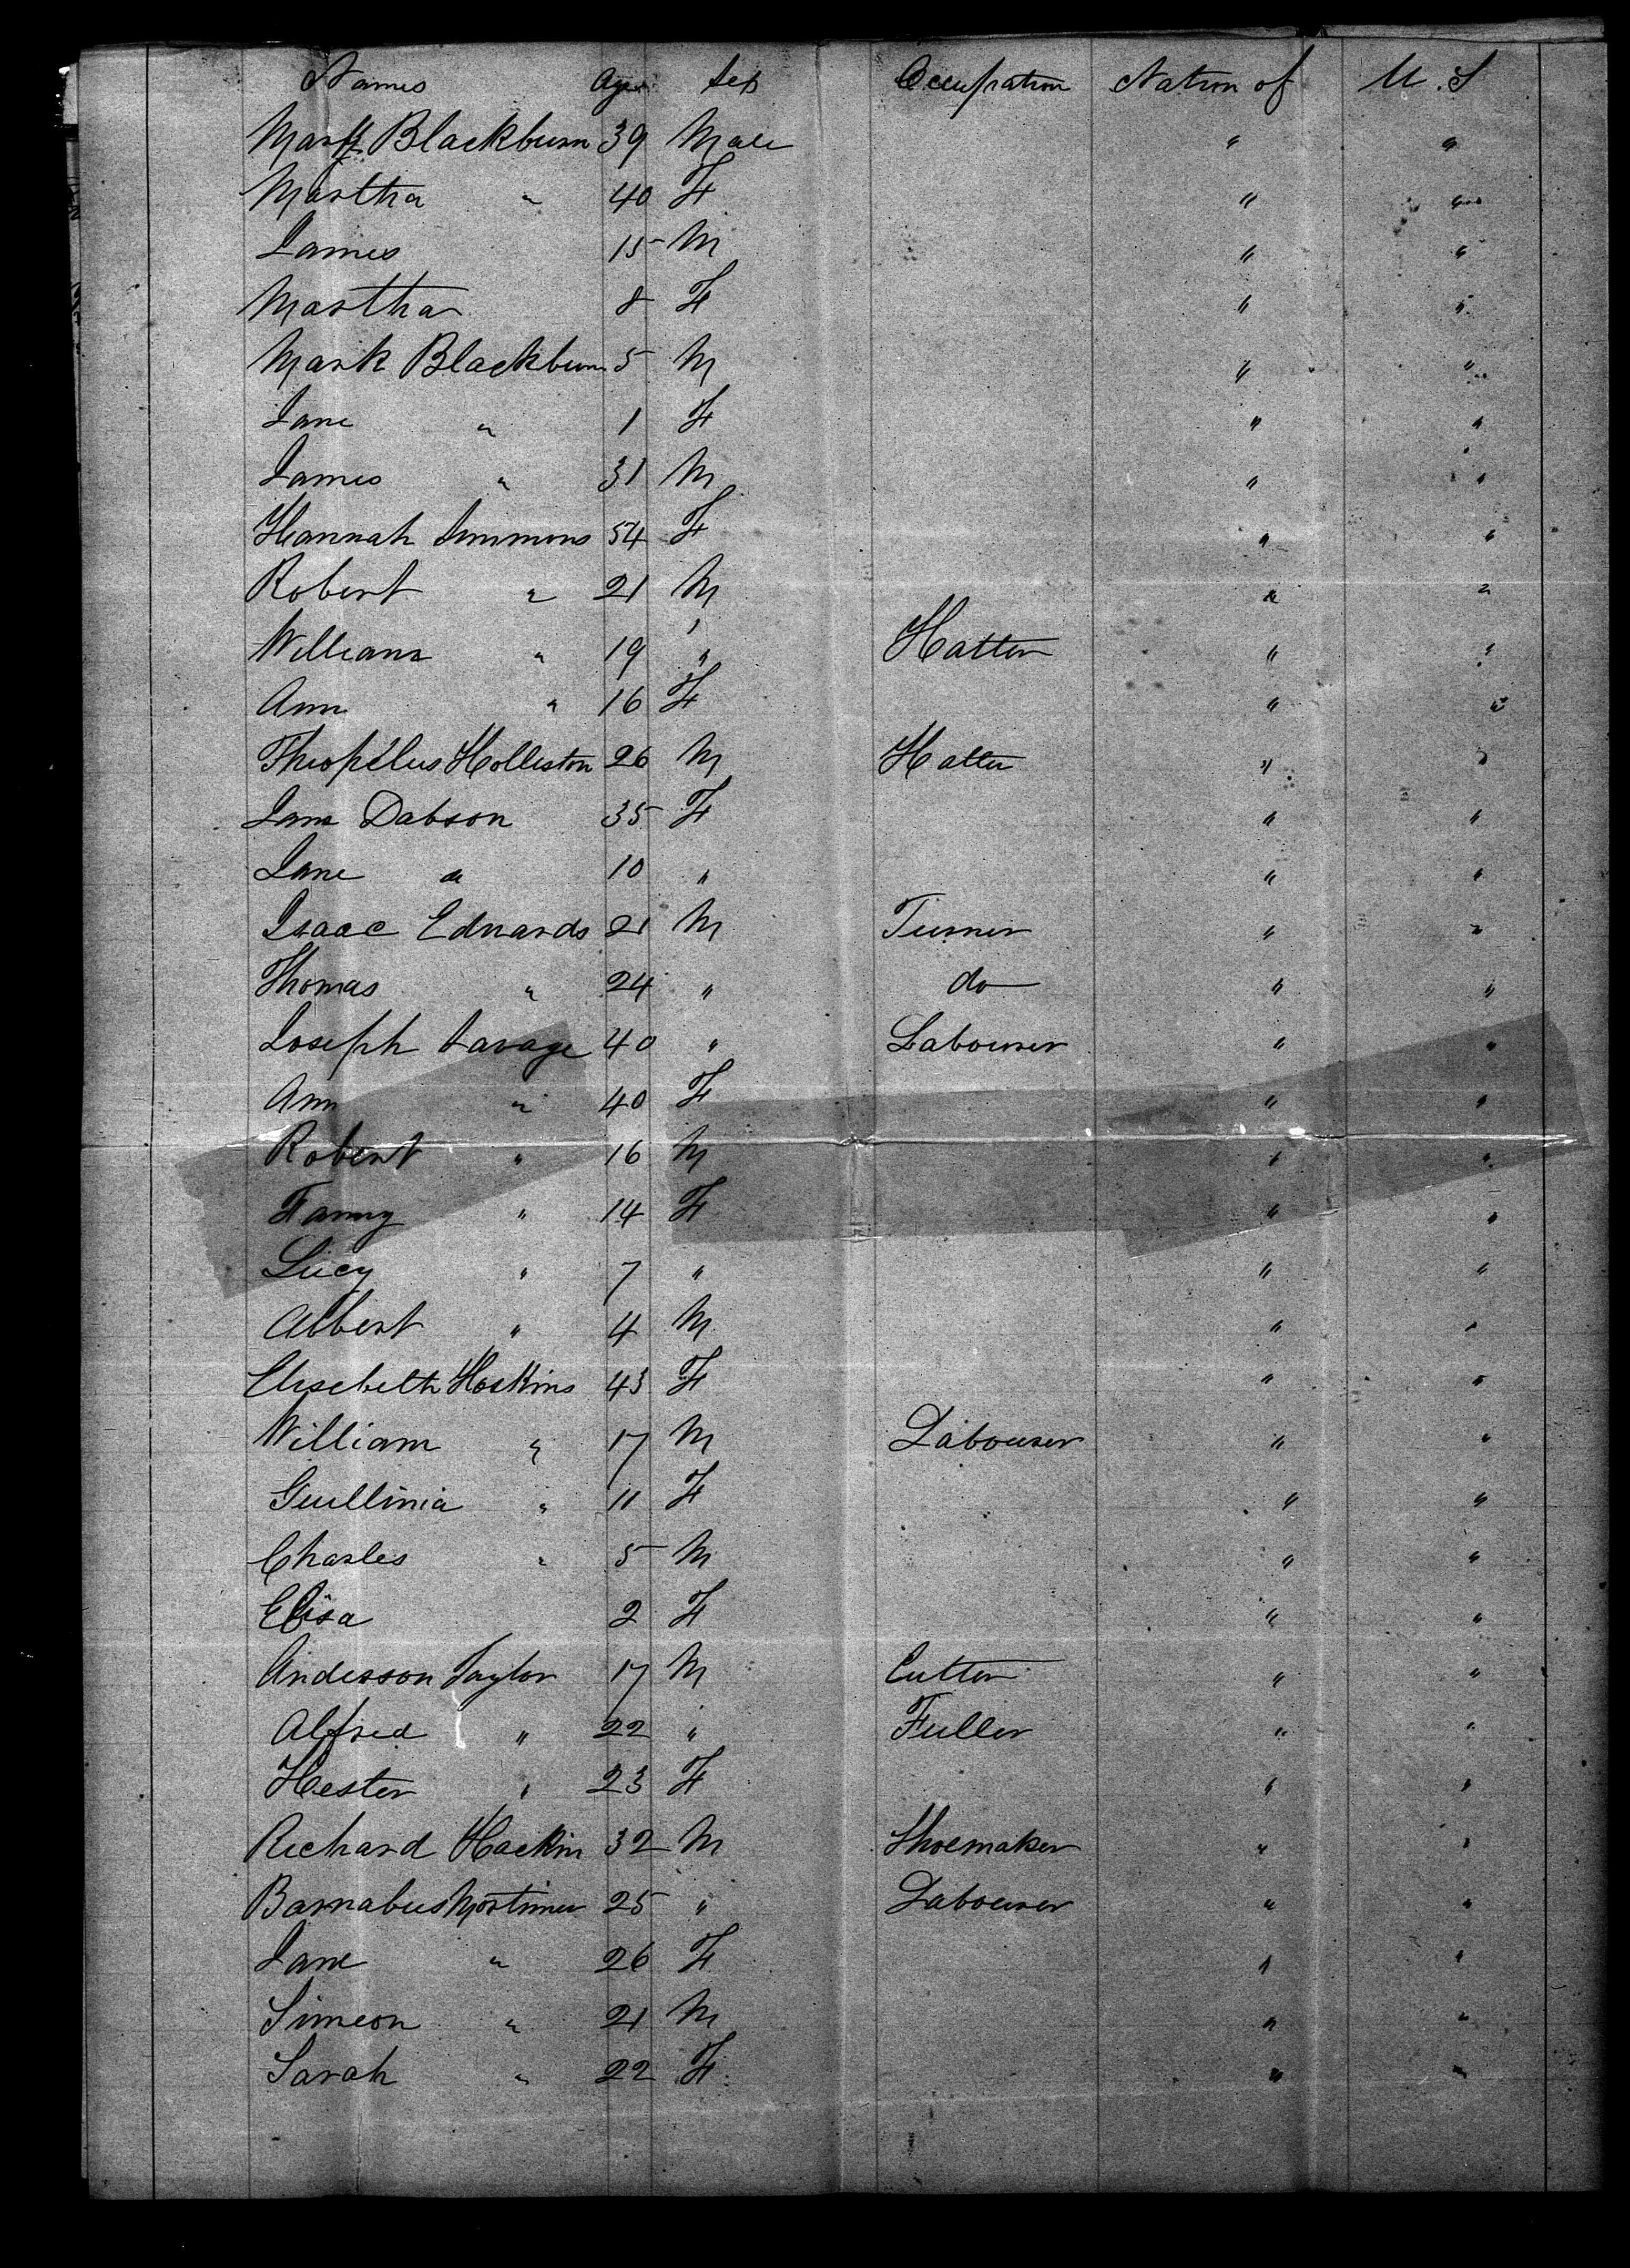 Names Age Sex Occupation Nation of U. S
Mark Blackburn 39 Male " "
Martha " 40 F " "
James 15 M " "
Martha 8 F " "
Mark Blackburn 5 M " "
Jane " 1 F " "
James " 31 M " "
Hannah Simmons 54 F " "
Robert " 21 M " "
William " 19 " Hatter " "
Ann " 16 F " "
Theopilus Holliston 26 M Hatter " "
Jane Dabson 35 F " "
Jane do 10 " " "
Isaac Edwards 21 M Turner " "
Thomas " 24 " do " "
Joseph Savage 40 " Labourer " "
Ann " 40 F " "
Robert " 16 M " "
Fanny " 14 F " "
Lucy " 7 " " "
Albert " 4 M " "
Elisebeth Hoskins 43 F " "
William " 17 M Labourer " "
Guillinia " 11 F " "
Charles " 5 M " "
Elisa 2 F " "
Anderson Taylor 17 M Cutter " "
Alfred " 22 " Fuller " "
Hester " 23 F " "
Richard Hackin 32 M Shoemaker " "
Barnabus Mortimer 25 " Labourer " "
Jane " 26 F " "
Simeon " 21 M " "
Sarah " 22 F " "